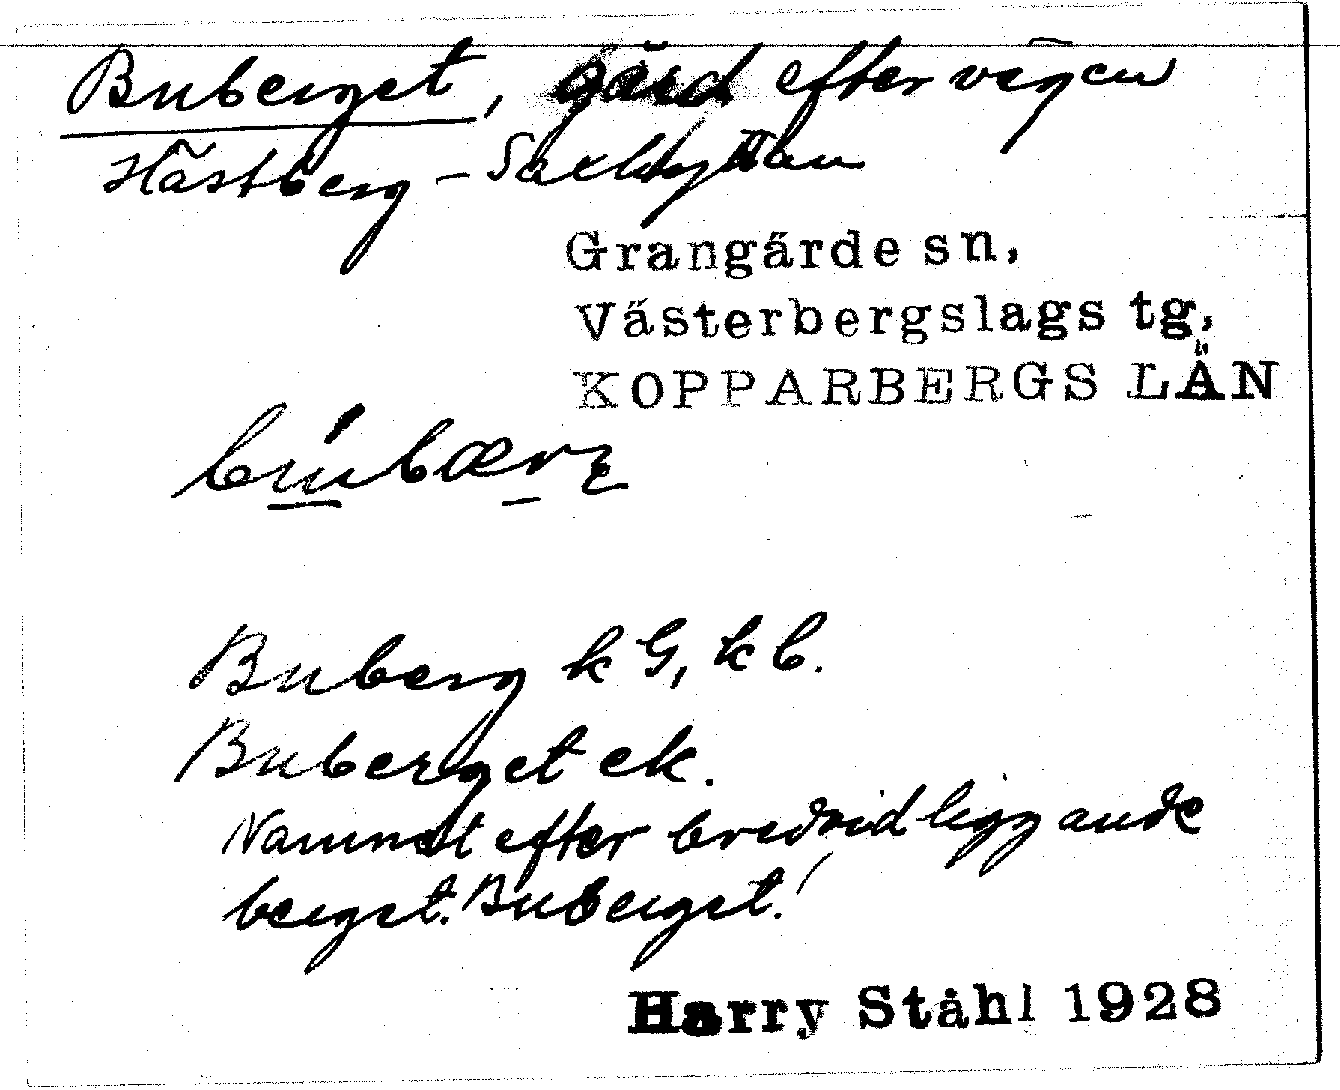 Buberget, gård efter vägen
Hästberg – Saxhyttan
Grangärde sn,
Västerbergslags tg,
KOPPARBERGS LÄN
Buberg k G, k b.
Buberget ek.
Namnet efter bredvid liggande
berget. Buberget.
Harry Ståhl 1928